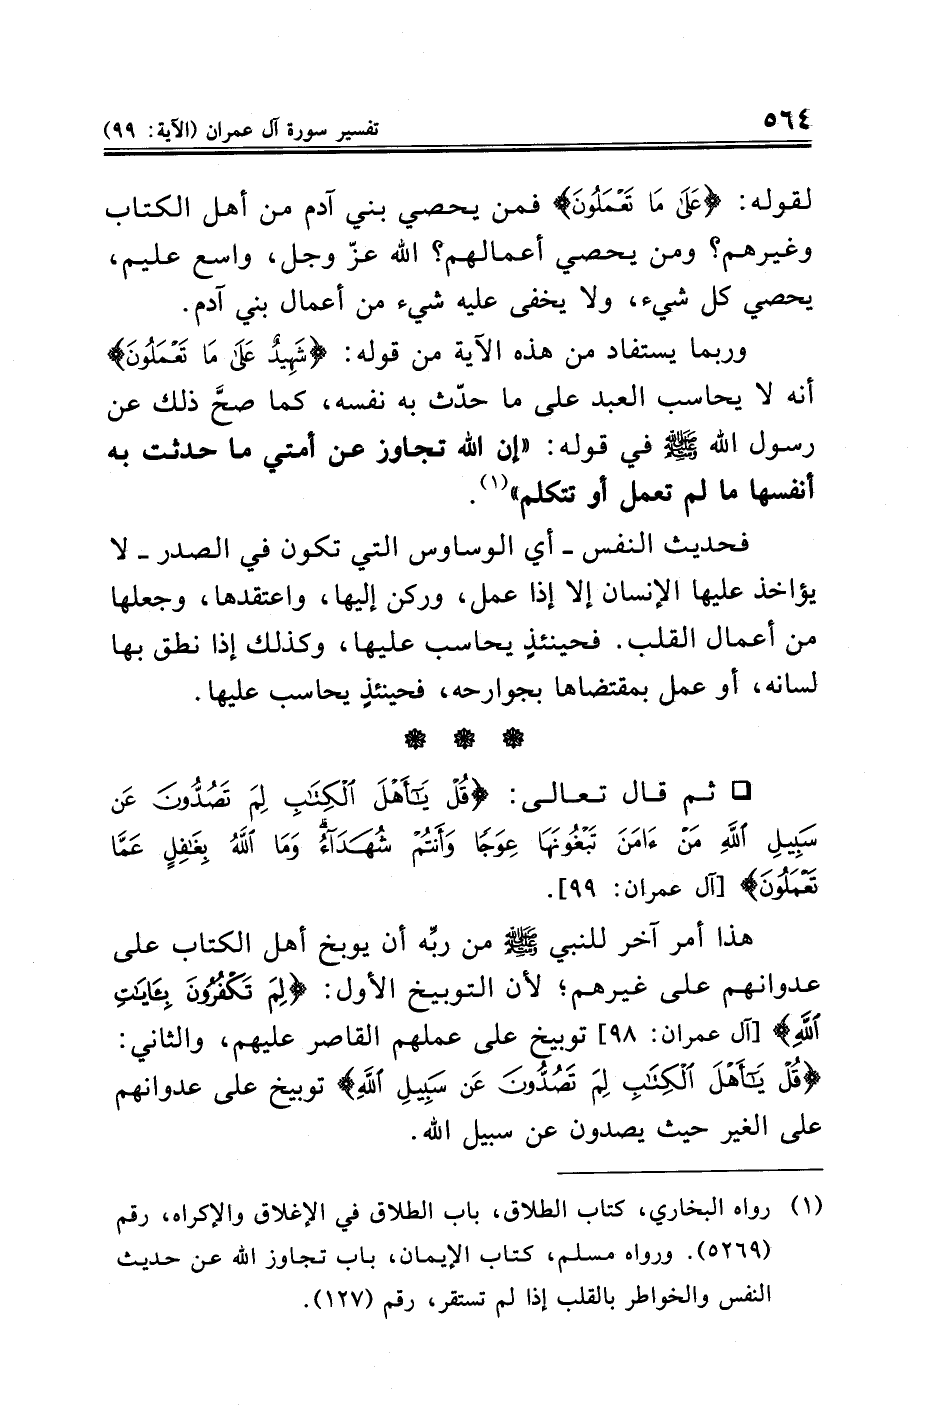 ٥٦٤
تفسير سورة آل عمران (الآية: ٩٩)
لقوله: ﴿عَلَىٰ مَا تَعْمَلُونَ﴾ فمن يحصي بني آدم من أهل الكتاب
وغيرهم؟ ومن يحصي أعمالهم؟ الله عزّ وجل، واسع عليم،
يحصي كل شيء، ولا يخفى عليه شيء من أعمال بني آدم.
وربما يستفاد من هذه الآية من قوله: ﴿شَهِيدٌ عَلَىٰ مَا تَعْمَلُونَ﴾
أنه لا يحاسب العبد على ما حدّث به نفسه، كما صحَّ ذلك عن
رسول الله ﷺ في قوله: «إن الله تجاوز عن أمتي ما حدثت به
أنفسها ما لم تعمل أو تتكلم»(١).
فحديث النفس ـ أي الوساوس التي تكون في الصدر ـ لا
يؤاخذ عليها الإنسان إلا إذا عمل، وركن إليها، واعتقدها، وجعلها
من أعمال القلب. فحينئذٍ يحاسب عليها، وكذلك إذا نطق بها
لسانه، أو عمل بمقتضاها بجوارحه، فحينئذٍ يحاسب عليها.
❁ ❁ ❁
□ ثم قال تعالى: ﴿قُلْ يَٰٓأَهْلَ ٱلْكِتَٰبِ لِمَ تَصُدُّونَ عَن
سَبِيلِ ٱللَّهِ مَنْ ءَامَنَ تَبْغُونَهَا عِوَجًا وَأَنتُمْ شُهَدَآءُ ۗ وَمَا ٱللَّهُ بِغَٰفِلٍ عَمَّا
تَعْمَلُونَ﴾ [آل عمران: ٩٩].
هذا أمر آخر للنبي ﷺ من ربّه أن يوبخ أهل الكتاب على
عدوانهم على غيرهم؛ لأن التوبيخ الأول: ﴿لِمَ تَكْفُرُونَ بِـَٔايَٰتِ
ٱللَّهِ﴾ [آل عمران: ٩٨] توبيخ على عملهم القاصر عليهم، والثاني:
﴿قُلْ يَٰٓأَهْلَ ٱلْكِتَٰبِ لِمَ تَصُدُّونَ عَن سَبِيلِ ٱللَّهِ﴾ توبيخ على عدوانهم
على الغير حيث يصدون عن سبيل الله.
(١) رواه البخاري، كتاب الطلاق، باب الطلاق في الإغلاق والإكراه، رقم
(٥٢٦٩). ورواه مسلم، كتاب الإيمان، باب تجاوز الله عن حديث
النفس والخواطر بالقلب إذا لم تستقر، رقم (١٢٧).